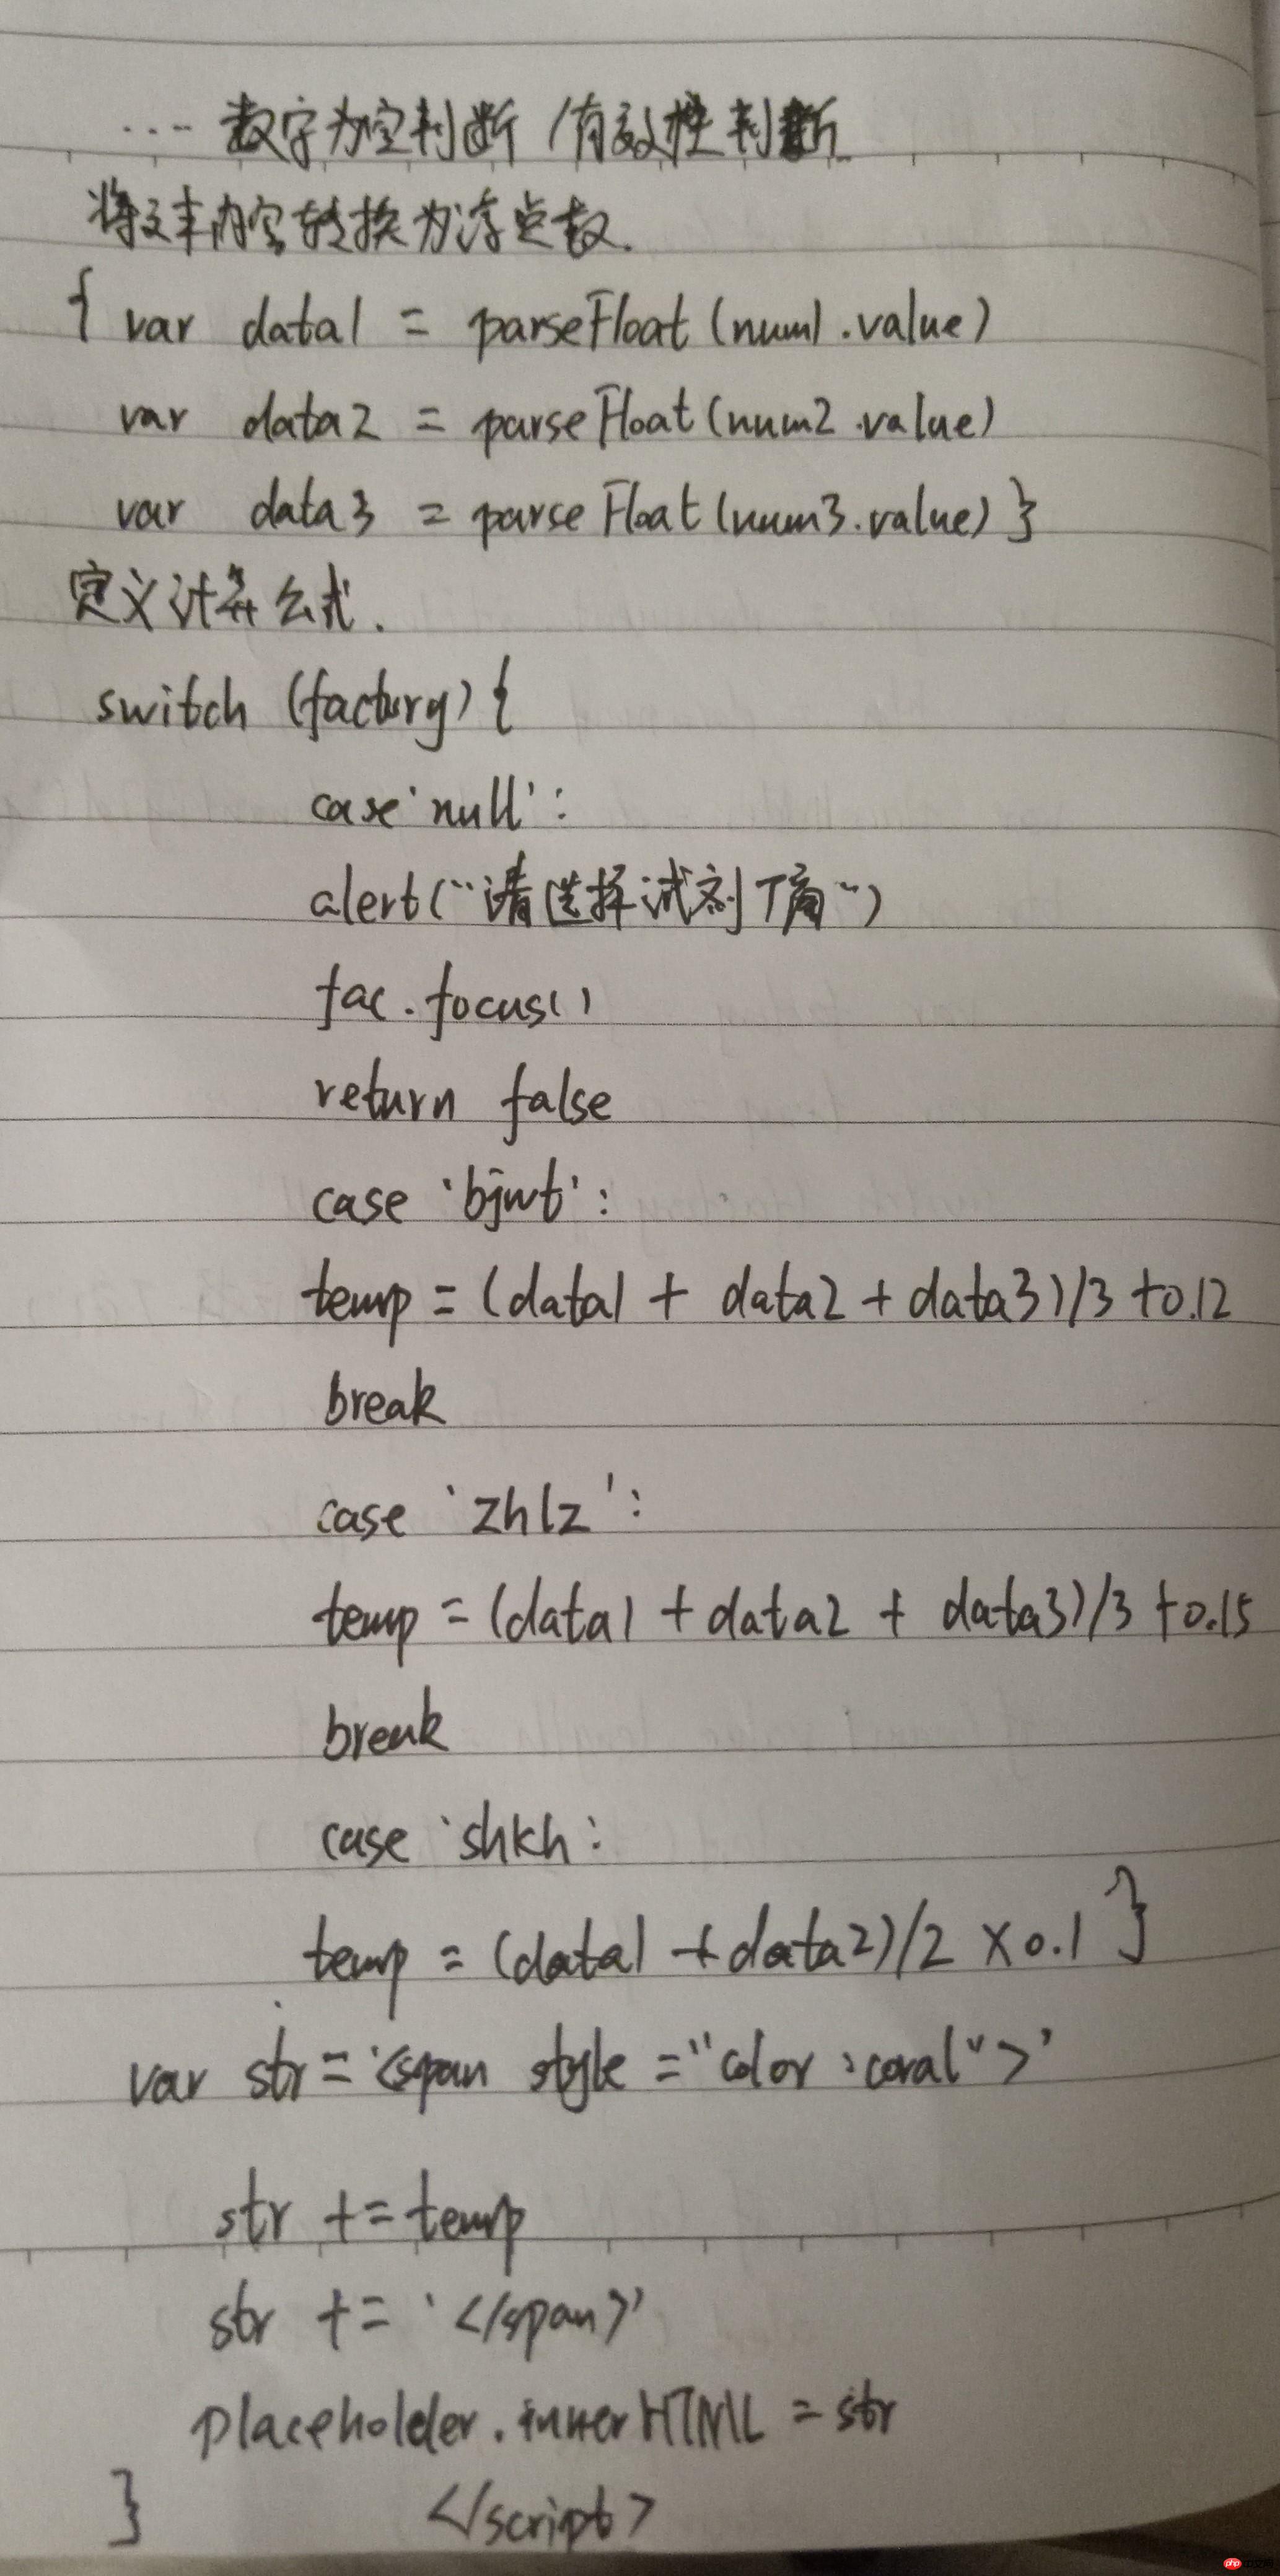 ... 数字为空判断/有效性判断
将文本内容转换为浮点数.
{ var data1 = parseFloat(num1.value)
var data2 = parseFloat(num2.value)
var data3 = parseFloat(num3.value) }
定义计算公式.
switch (factory) {
case 'null':
alert("请选择试剂厂商")
fac.focus()
return false
case 'bjwt':
temp = (data1 + data2 + data3)/3 +0.12
break
case 'zhlz':
temp = (data1 + data2 + data3)/3 +0.15
break
case 'shkh:
temp = (data1 + data2)/2 ×0.1 }
var str = '<span style ="color:coral">'
str += temp
str += '</span>'
placeholder.innerHTML = str
} </script>
php